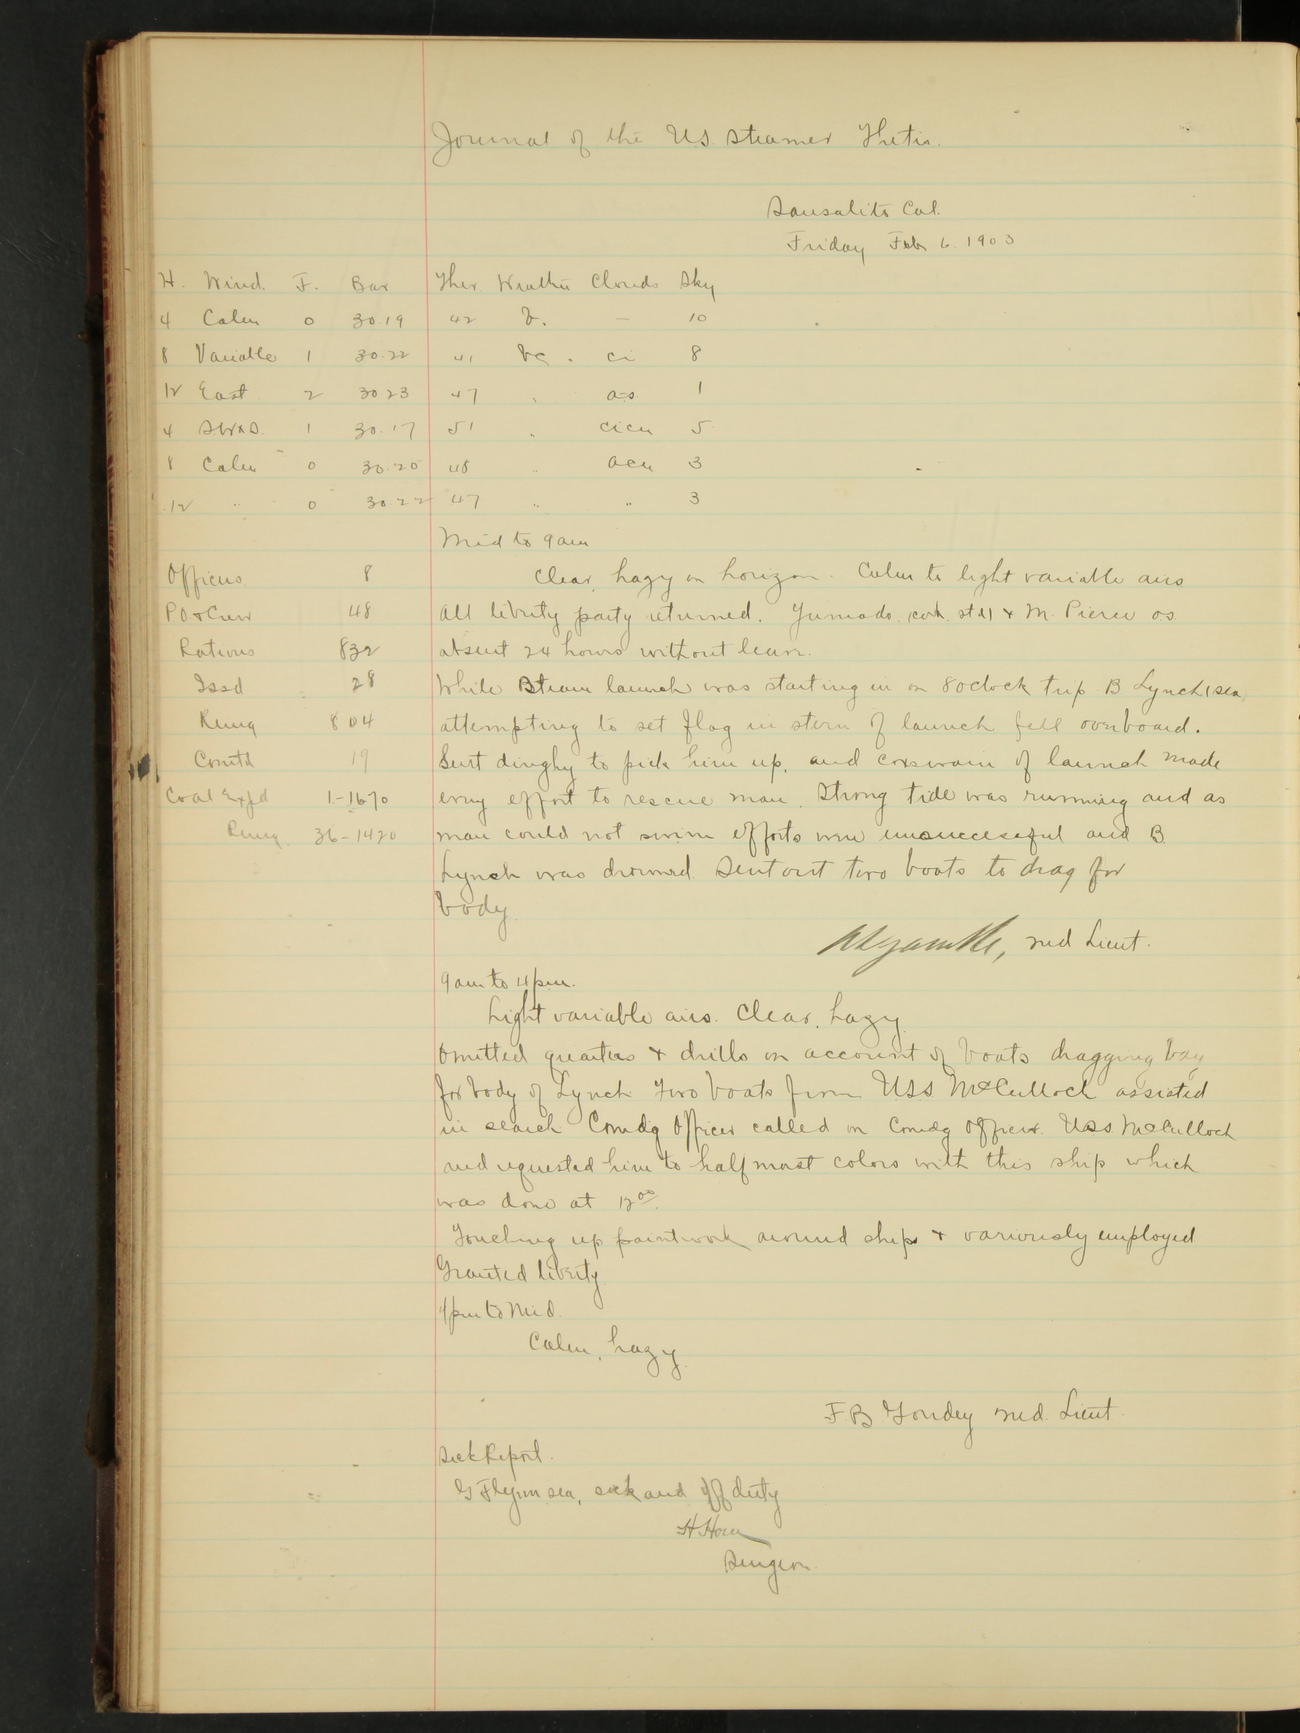 Journal of the US. Steamer Thetis.
Sausalito Cal.
Friday Feb 6. 1903
H. Wind. F. Bar Ther. Weather Clouds Sky
4 Calm 0 30.19 42 b. — 10
8 Variable 1 30.22 41 bc . ci 8
12 East 2 30 23 47 " as 1
4 SWxS. 1 30.17 51 " cicu 5
8 Calm 0 30.20 48 " acu 3
12 " 0 30.22 47 " " 3
Mid to 9 am
Officers 8
Clear, hazy on horizon. Calm to light variable airs
PO & Crew 48
All liberty party returned. & M. Pierce os
Rations 832
absent 24 hours without leave.
Issd 28
While Steam launch was starting in on 8 oclock trip B Lynch (sea
Remg 804
attempting to set flag in stern of launch fell overboard.
Comtd 19
Sent dinghy to pick him up, and coxswain of launch made
Coal Expd 1-1670
every effort to rescue man. Strong tide was running and as
Remg. 36-1420
man could not swim efforts were unsuccessful and B
Lynch was drowned Sent out two boats to drag for
body
2nd Lieut.
9 am to 4 pm.
Light variable airs. Clear, hazy
Omitted quarters & drills on account of boats dragging bay
for body of Lynch Two boats from USS McCulloch assisted
in search Comdg Officer called on Comdg Officer USS McCulloch
and requested him to half mast colors with this ship which
was done at 12 00.
Touching up paintwork around ship & variously employed
Granted liberty
4 pm to Mid.
Calm, hazy.
F.B. 2nd. Lieut.
Sick Report.
G Flynn sea, sick and off duty
H Horn
Surgeon.